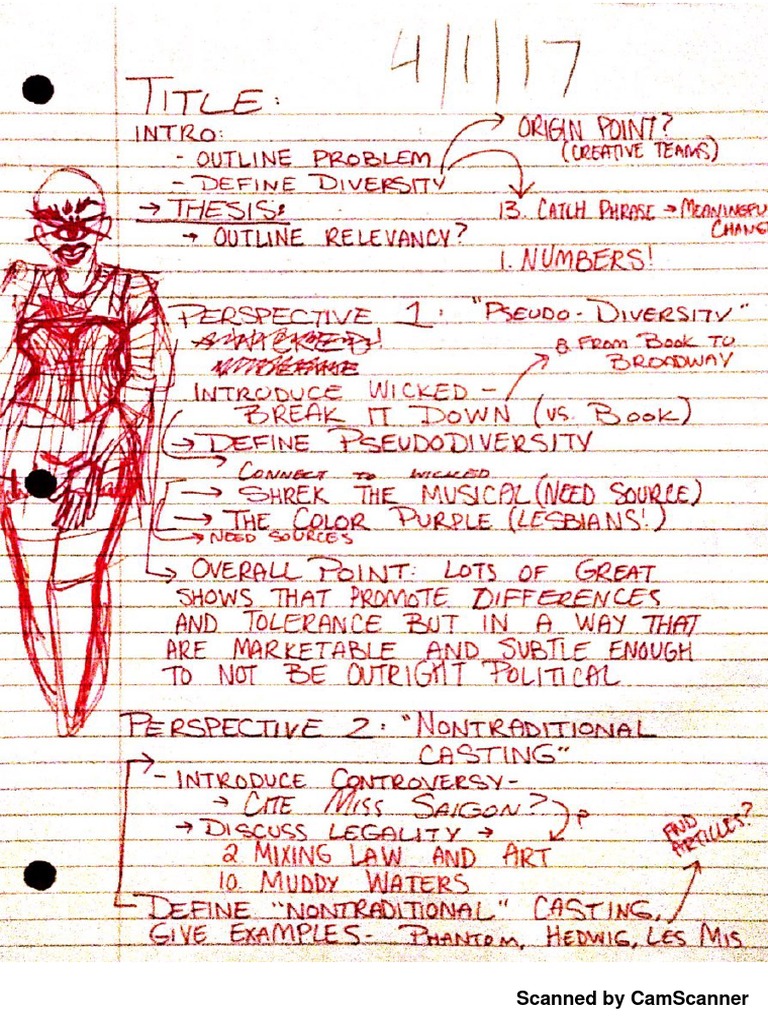 4/1/17
TITLE:
INTRO:
- OUTLINE PROBLEM
ORIGIN POINT?
(CREATIVE TEAMS)
- DEFINE DIVERSITY
→ THESIS:
13. CATCH PHRASE → MEANINGFU
CHANG
→ OUTLINE RELEVANCY?
1. NUMBERS!
PERSPECTIVE 1: "PSEUDO-DIVERSITY"
8 FROM BOOK TO
BROADWAY
INTRODUCE WICKED -
BREAK IT DOWN (VS. BOOK)
→ DEFINE PSEUDODIVERSITY
→ CONNECT TO WICKED
→ SHREK THE MUSICAL (NEED SOURCE)
→ THE COLOR PURPLE (LESBIANS!)
→ NEED SOURCES
→ OVERALL POINT: LOTS OF GREAT
SHOWS THAT PROMOTE DIFFERENCES
AND TOLERANCE BUT IN A WAY THAT
ARE MARKETABLE AND SUBTLE ENOUGH
TO NOT BE OUTRIGHT POLITICAL
PERSPECTIVE 2: "NONTRADITIONAL
CASTING"
- INTRODUCE CONTROVERSY -
→ CITE MISS SAIGON? ?
→ DISCUSS LEGALITY →
2. MIXING LAW AND ART
10. MUDDY WATERS
FIND
ARTICLES?
DEFINE "NONTRADITIONAL" CASTING,
GIVE EXAMPLES - PHANTOM, HEDWIG, LES MIS
Scanned by CamScanner